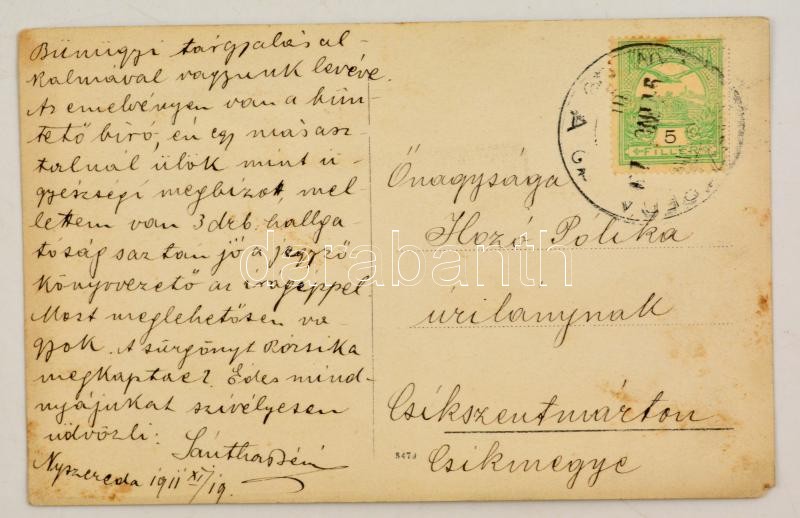 Bünügyi tárgyalás al-
kalmával vagyunk levéve.
Az emelvényen van a bün-
tető biró, én egy más asz-
talnál ülök mint ü-
gyészségi megbizott, mel-
lettem van 3 drb. hallga
tóság aztán jő a jegyző
könyvvezető az irógéppel.
Most meglehetősen va-
gyok. A sürgönyt Rózsika
megkapta e? Édes mind-
nyájukat szivélyesen
üdvözli: Sántha Béni
Nyszereda 1911 XI/19.
Őnagysága
Hozó Pólika
úrilánynak
Csíkszentmárton
Csikmegye
5
FILLÉR
darabanth